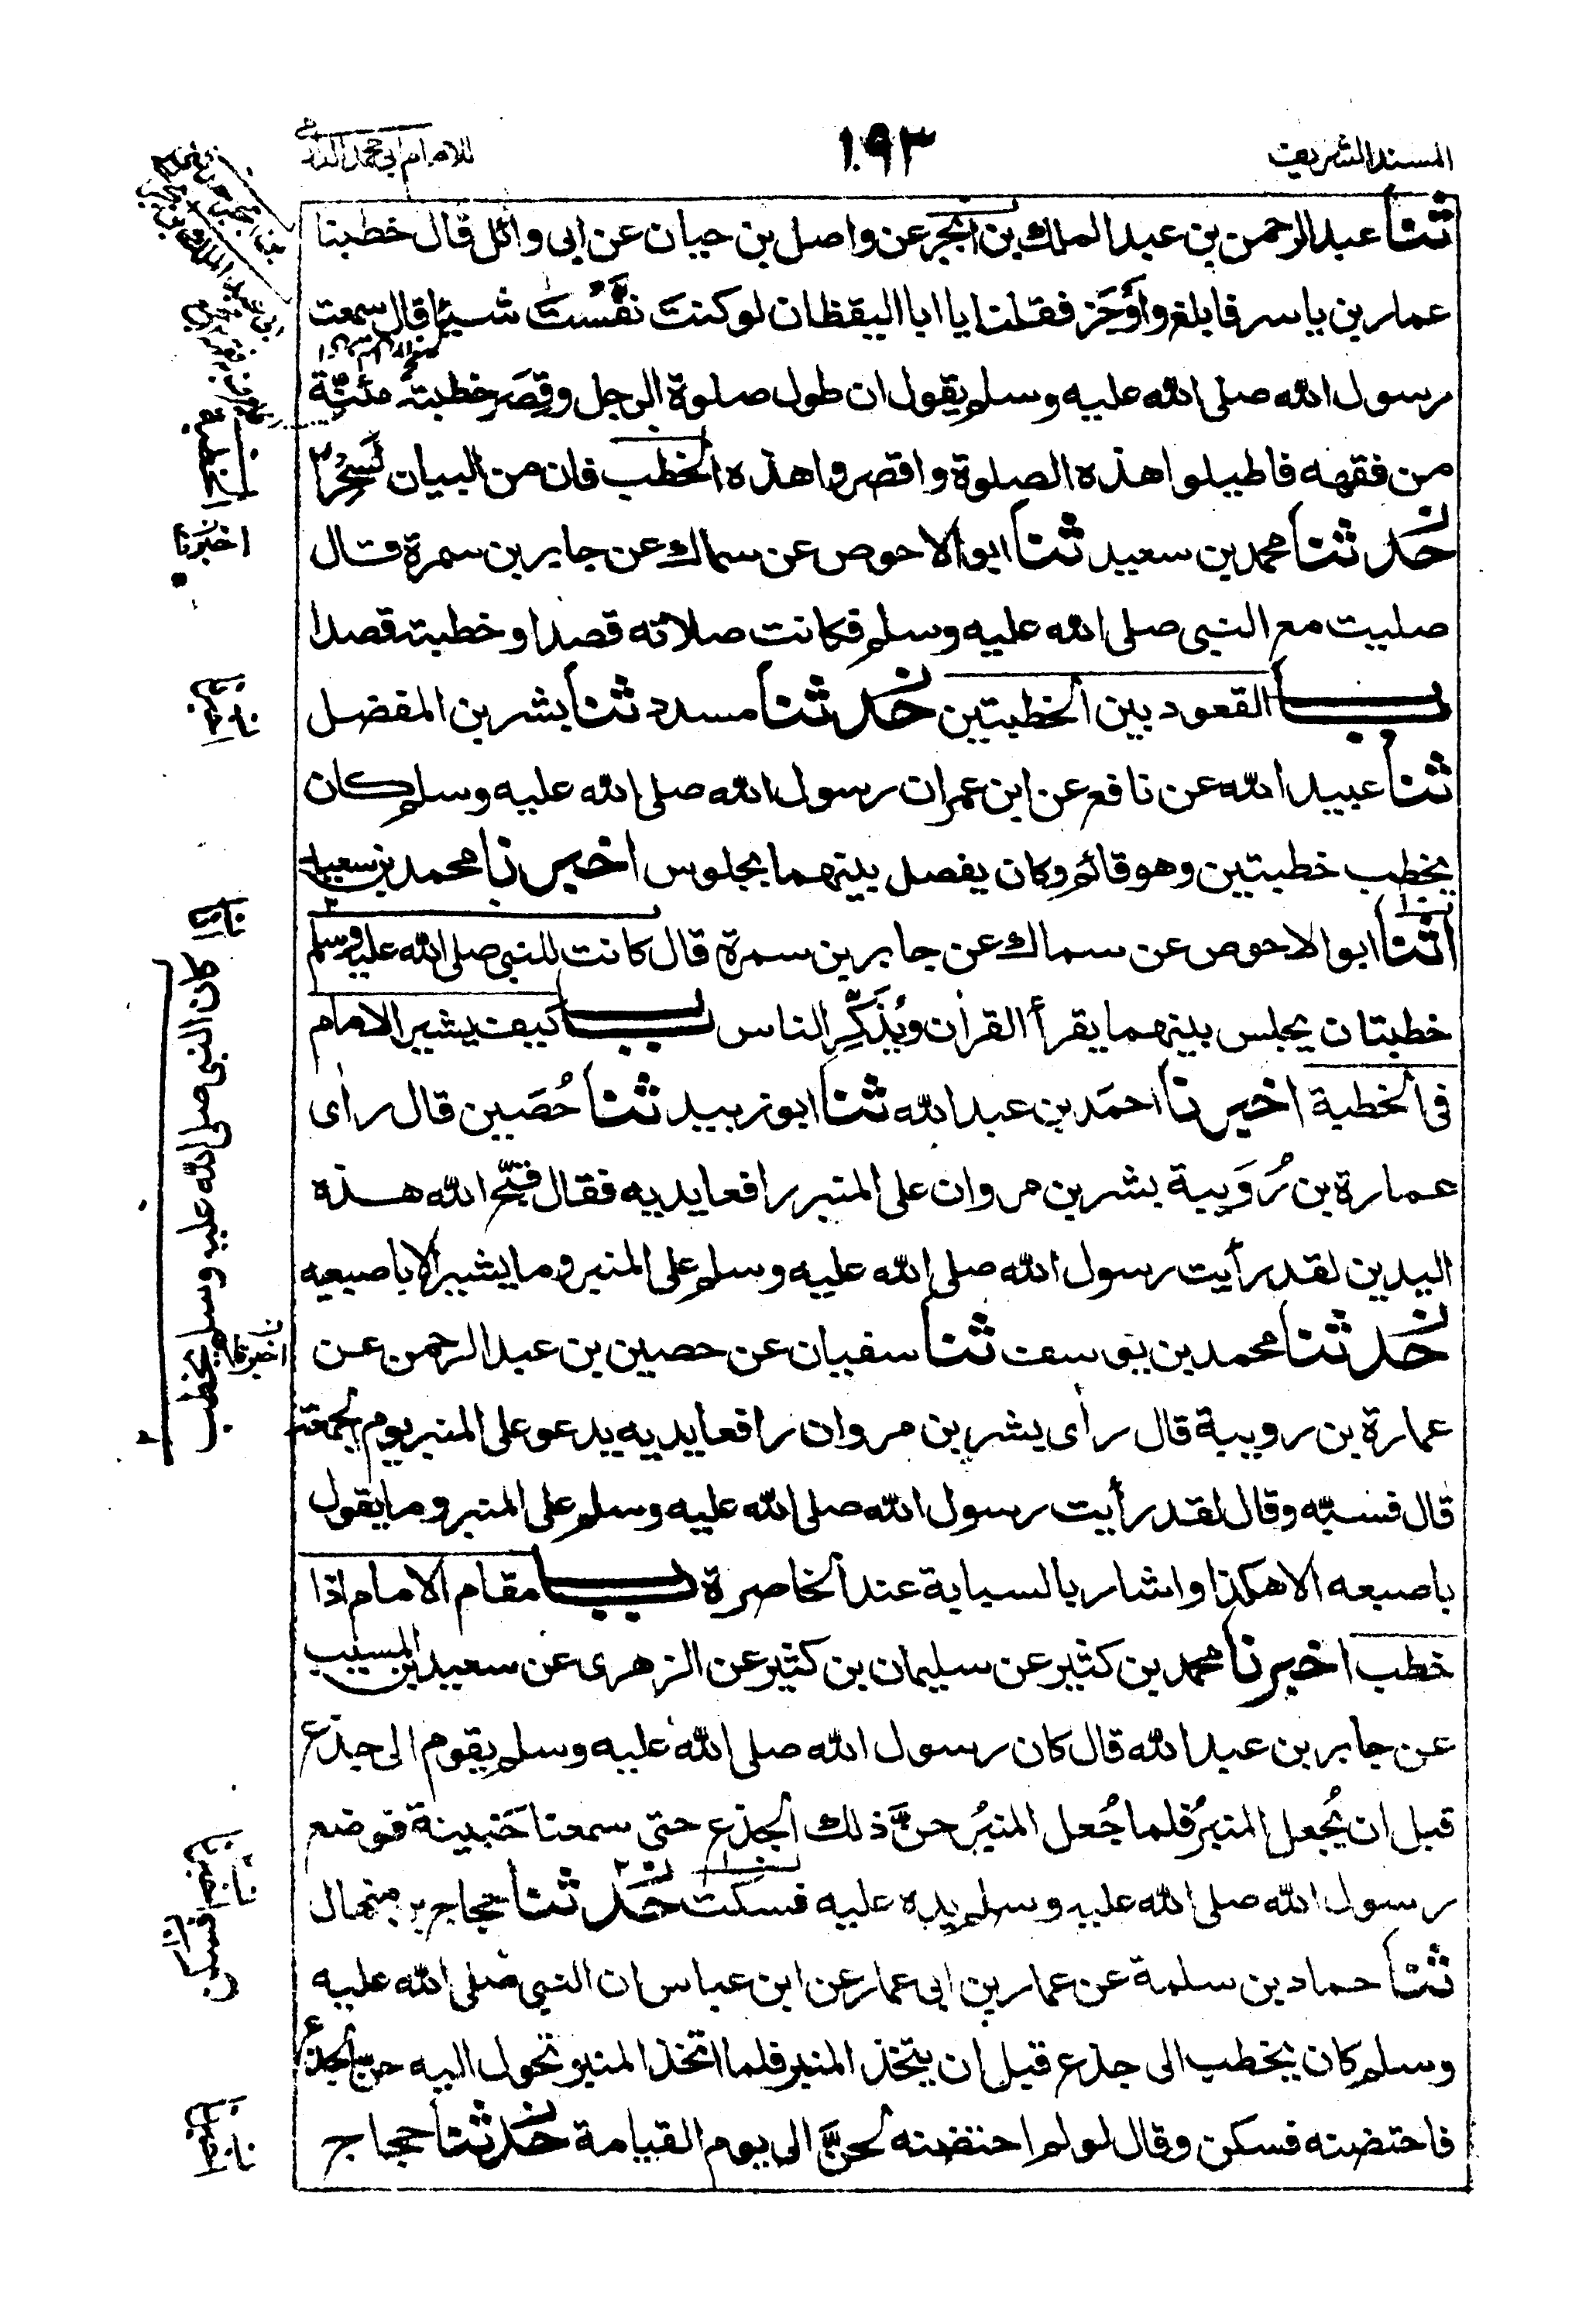 المسند الشريف
١٩٣
للامام ابي محمد الدارمي
ثنا عبد الرحمن بن عبد الملك بن ابجر عن واصل بن حبان عن ابى وائل قال خطبنا
عمار بن ياسر فابلغ وأَوْجَز فقلنا يا ابا اليقظان لو كنتَ نفَّسْتَ شيئا قال سمعت
رسول الله صلى الله عليه وسلم يقول ان طول صلوة الرجل وقِصَر خطبته مئنّة
من فقهه فاطيلوا هذه الصلوة واقصروا هذه الخطب فان من البيان لَسِحْرا
حدثنا محمد بن سعيد ثنا ابو الاحوص عن سماك عن جابر بن سمرة قال
صليت مع النبى صلى الله عليه وسلم فكانت صلاته قصدا وخطبته قصدا
باب القعود بين الخطبتين حدثنا مسدد ثنا بشر بن المفضل
ثنا عبيد الله عن نافع عن ابن عمر ان رسول الله صلى الله عليه وسلم كان
يخطب خطبتين وهو قائم وكان يفصل بينهما بجلوس اخبرنا محمد بن سعيد
ثنا ابو الاحوص عن سماك عن جابر بن سمرة قال كانت للنبى صلى الله عليه وسلم
خطبتان يجلس بينهما يقرأ القرأن ويُذَكِّر الناس باب كيف يشير الامام
فى الخطبة اخبرنا احمَد بن عبد الله ثنا ابو زبيد ثنا حُصَين قال رأى
عمارة بن رُوَيبة بشر بن مروان على المنبر رافعا يديه فقال قبّح الله هذه
اليدين لقد رأيت رسول الله صلى الله عليه وسلم على المنبر وما يشير الا باصبعيه
حدثنا محمد بن يوسف ثنا سفيان عن حصين بن عبد الرحمن عن
عمارة بن رويبة قال رأى بشر بن مروان رافعا يديه يدعو على المنبر يوم الجمعة
قال فسبّه وقال لقد رأيت رسول الله صلى الله عليه وسلم على المنبر وما يقول
باصبعه الا هكذا واشار بالسبابة عند الخاصرة باب مقام الامام اذا
خطب اخبرنا محمد بن كثير عن سليمان بن كثير عن الزهرى عن سعيد بن المسيب
عن جابر بن عبد الله قال كان رسول الله صلى الله عليه وسلم يقوم الى جذع
قبل ان يُجعل المنبرُ فلما جُعل المنبرُ حنَّ ذلك الجذع حتى سمعنا حَنينه فوضع
رسول الله صلى الله عليه وسلم يده عليه فسكت حدثنا حجاج بن منهال
ثنا حماد بن سلمة عن عمار بن ابى عمار عن ابن عباس ان النبى صلى الله عليه
وسلم كان يخطب الى جذع قبل ان يتخذ المنبر فلما اتخذ المنبر وتحول اليه حن الجذع
فاحتضنه فسكن وقال لو لم احتضنه لحنَّ الى يوم القيامة حدثنا حجاج
اخبرنا
كان النبى صلى الله عليه وسلم يخطب
اخبرنا
فسكن